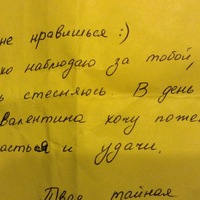 не нравишься :)
наблюдаю за тобой,
стесняюсь. В день
Валентина хочу
и удачи.
Твоя тайная